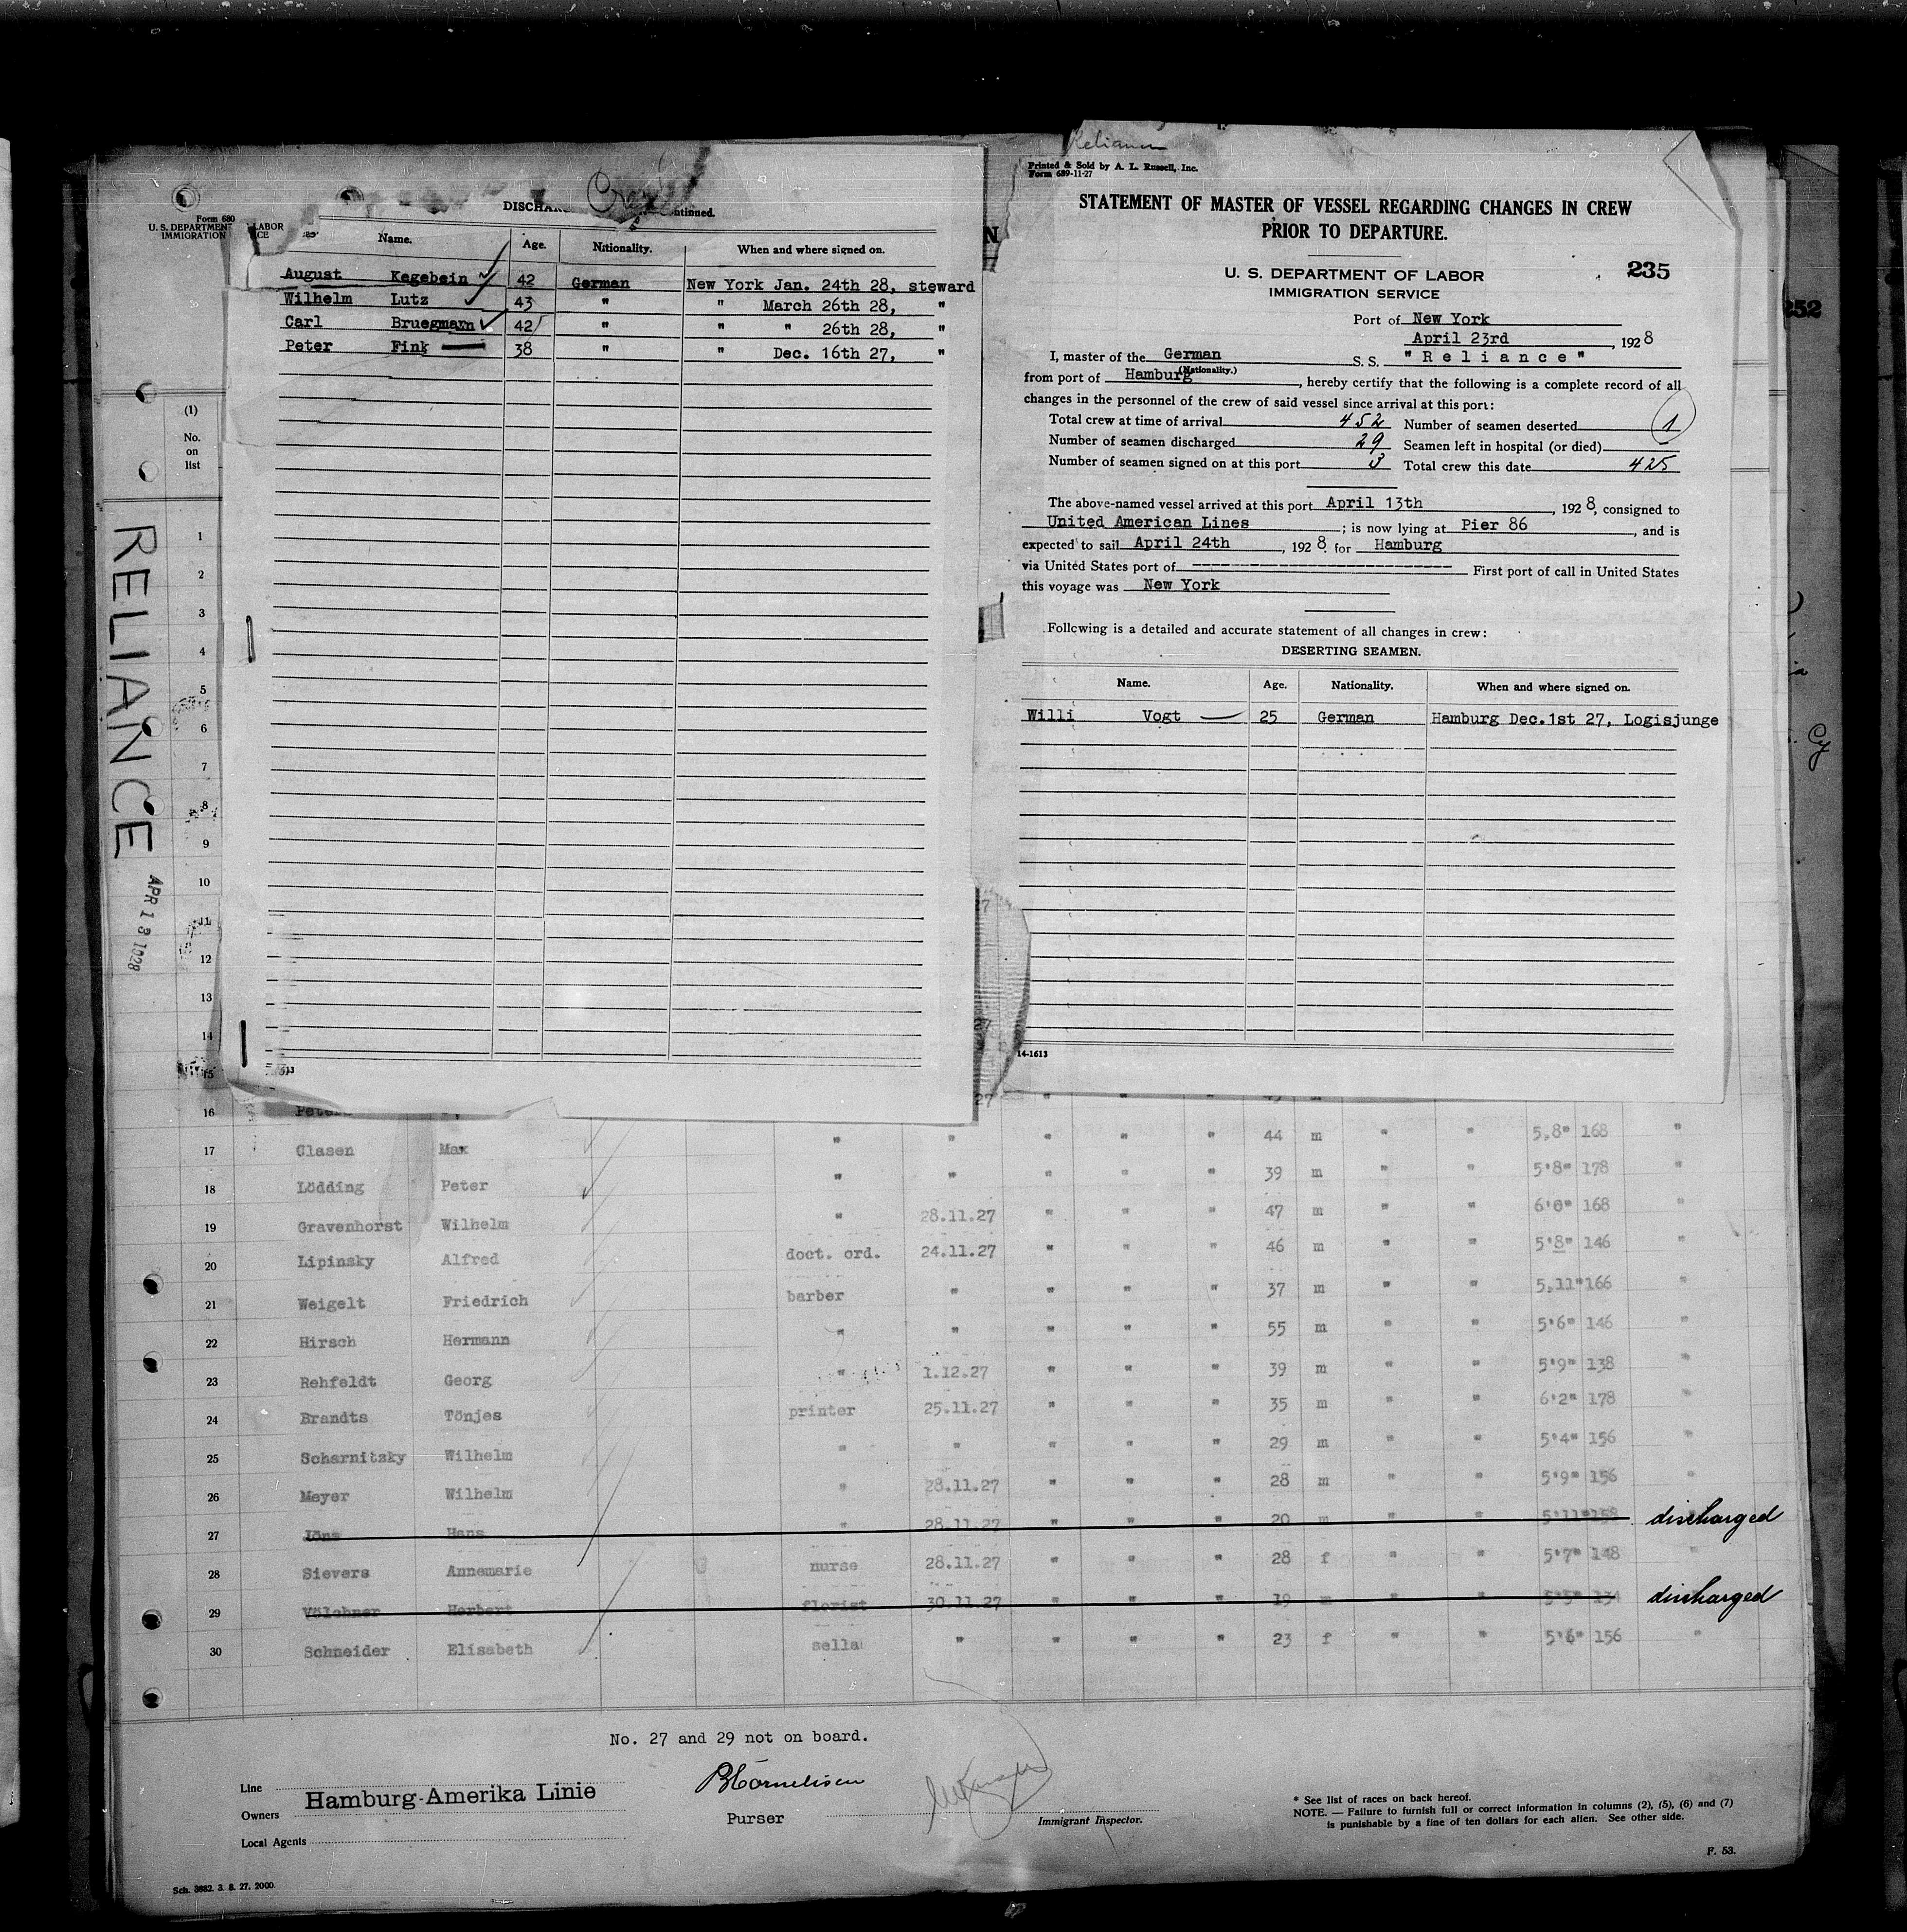 Form 680
U. S. DEPARTMENT LABOR
IMMIGRATION
(1)
No.
on
list
RELIANCE
APR 13 1928
Crew
DISCHAR ntinued.
Name. Age. Nationality. When and where signed on.
August Kegebein 42 German New York Jan. 24th 28, steward
Wilhelm Lutz 43 " " March 26th 28, "
Carl Bruegmann 42 " " " 26th 28, "
Peter Fink 38 " " Dec. 16th 27, "
Reliance
Printed & Sold by A. L. Russell, Inc.
Form 689-11-27
STATEMENT OF MASTER OF VESSEL REGARDING CHANGES IN CREW
PRIOR TO DEPARTURE.
U. S. DEPARTMENT OF LABOR
IMMIGRATION SERVICE
235
252
Port of New York
April 23rd, 1928
I, master of the German S. S. "Reliance"
(Nationality.)
from port of Hamburg, hereby certify that the following is a complete record of all
changes in the personnel of the crew of said vessel since arrival at this port:
Total crew at time of arrival 452 Number of seamen deserted 1
Number of seamen discharged 29 Seamen left in hospital (or died)
Number of seamen signed on at this port 3 Total crew this date 425
The above-named vessel arrived at this port April 13th, 1928, consigned to
United American Lines; is now lying at Pier 86, and is
expected to sail April 24th, 1928 for Hamburg
via United States port of ---------- First port of call in United States
this voyage was New York
Following is a detailed and accurate statement of all changes in crew:
DESERTING SEAMEN.
Name. Age. Nationality. When and where signed on.
Willi Vogt 25 German Hamburg Dec.1st 27, Logisjunge
14-1613
1
2
3
4
5
6
7
8
9
10
11
12
13
14
15
16 Peters
17 Clasen Max " " " " " 44 m " " 5,8" 168 "
18 Lödding Peter " " " " " 39 m " " 5'8" 178 "
19 Gravenhorst Wilhelm " 28.11.27 " " " 47 m " " 6'0" 168 "
20 Lipinsky Alfred doct. ord. 24.11.27 " " " 46 m " " 5'8" 146 "
21 Weigelt Friedrich barber " " " " 37 m " " 5,11" 166 "
22 Hirsch Hermann " " " " " 55 m " " 5'6" 146 "
23 Rehfeldt Georg " 1.12.27 " " " 39 m " " 5'9" 138 "
24 Brandts Tönjes printer 25.11.27 " " " 35 m " " 6'2" 178 "
25 Scharnitzky Wilhelm " " " " " 29 m " " 5'4" 156 "
26 Meyer Wilhelm " 28.11.27 " " " 28 m " " 5'9" 156 "
27 Jöns Hans " 28.11.27 " " " 20 m " " 5'11" 158 discharged
28 Sievers Annemarie nurse 28.11.27 " " " 28 f " " 5'7" 148 "
29 Völchner Herbert florist 30.11.27 " " " 19 m " " 5'5" 134 discharged
30 Schneider Elisabeth sella " " " " 23 f " " 5'6" 156 "
No. 27 and 29 not on board.
Line
Owners Hamburg-Amerika Linie
Local Agents
BCornelisen
Purser
Immigrant Inspector.
* See list of races on back hereof.
NOTE. — Failure to furnish full or correct information in columns (2), (5), (6) and (7)
is punishable by a fine of ten dollars for each alien. See other side.
F. 53.
Sch. 3882. 3. 8. 27. 2000